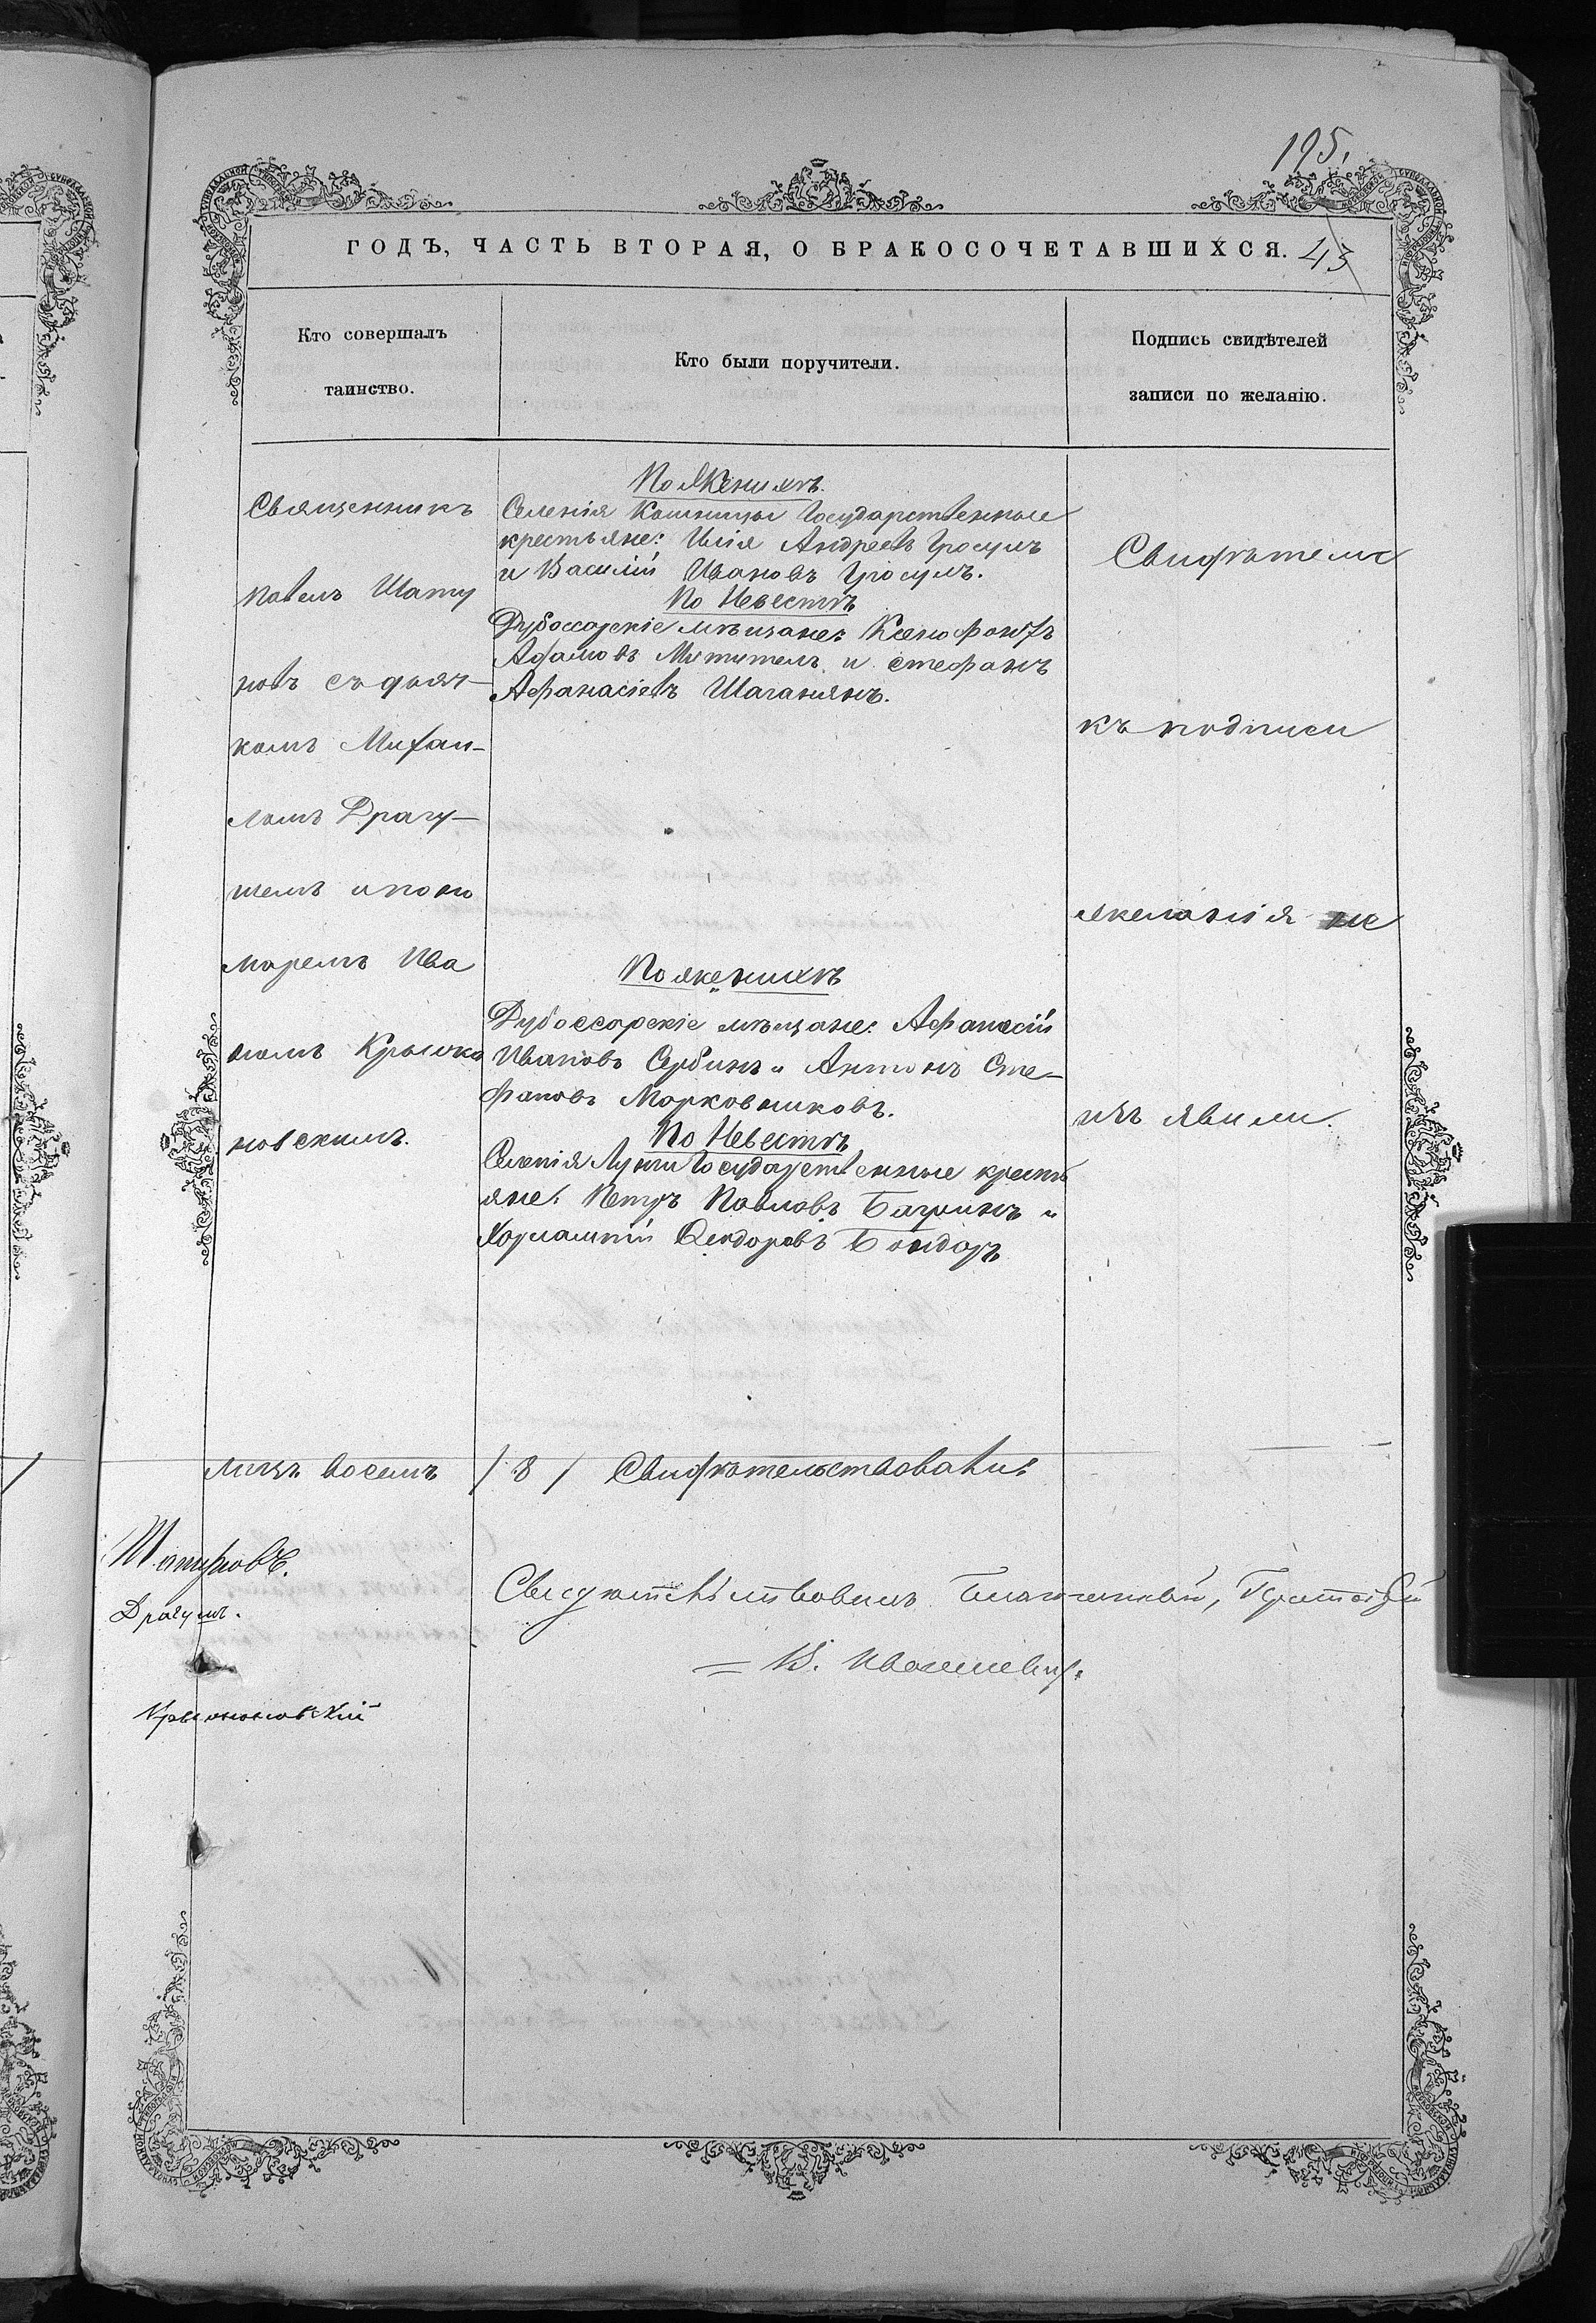 195.
ГОДЪ, ЧАСТЬ ВТОРАЯ, О БРАКОСОЧЕТАВШИХСЯ. 43
Кто совершалъ
таинство.
Кто были поручители.
Подпись свидѣтелей
записи по желанію.
Священникъ
Павелъ Шату
новъ съ дьяч-
комъ Михаи-
ломъ Драгу-
шемъ и поно
маремъ Ива
номъ Крыжа
новскимъ.
По Женихѣ.
Селенія Кошницы Государственные
крестьяне: Илія Андреевъ Гросулъ
и Василій Ивановъ Гросулъ.
По Невестѣ
Дубоссарскіе мѣщане: Ксенофонтъ
Адамовъ Мититель и Стефанъ
Афанасіевъ Шаганянъ.
По женихѣ
Дубоссарскіе мѣщане: Афанасій
Ивановъ Сербинъ и Антонъ Сте-
фановъ Морковниковъ.
По Невестѣ
Селенія Лунги Государственные кресть
яне: Петръ Павловъ Багринъ и
Харлампій Феодоровъ Бондарь
Свидѣтели
къ подписи
желанія не
изъявили.
лицъ восемь / 8 / Свидѣтельствовали:
Шатуновъ.
Драгушъ.
Крыжановскій
Свидѣтельствовалъ Благочинный, Протоіерей
= В. Ивашевичъ